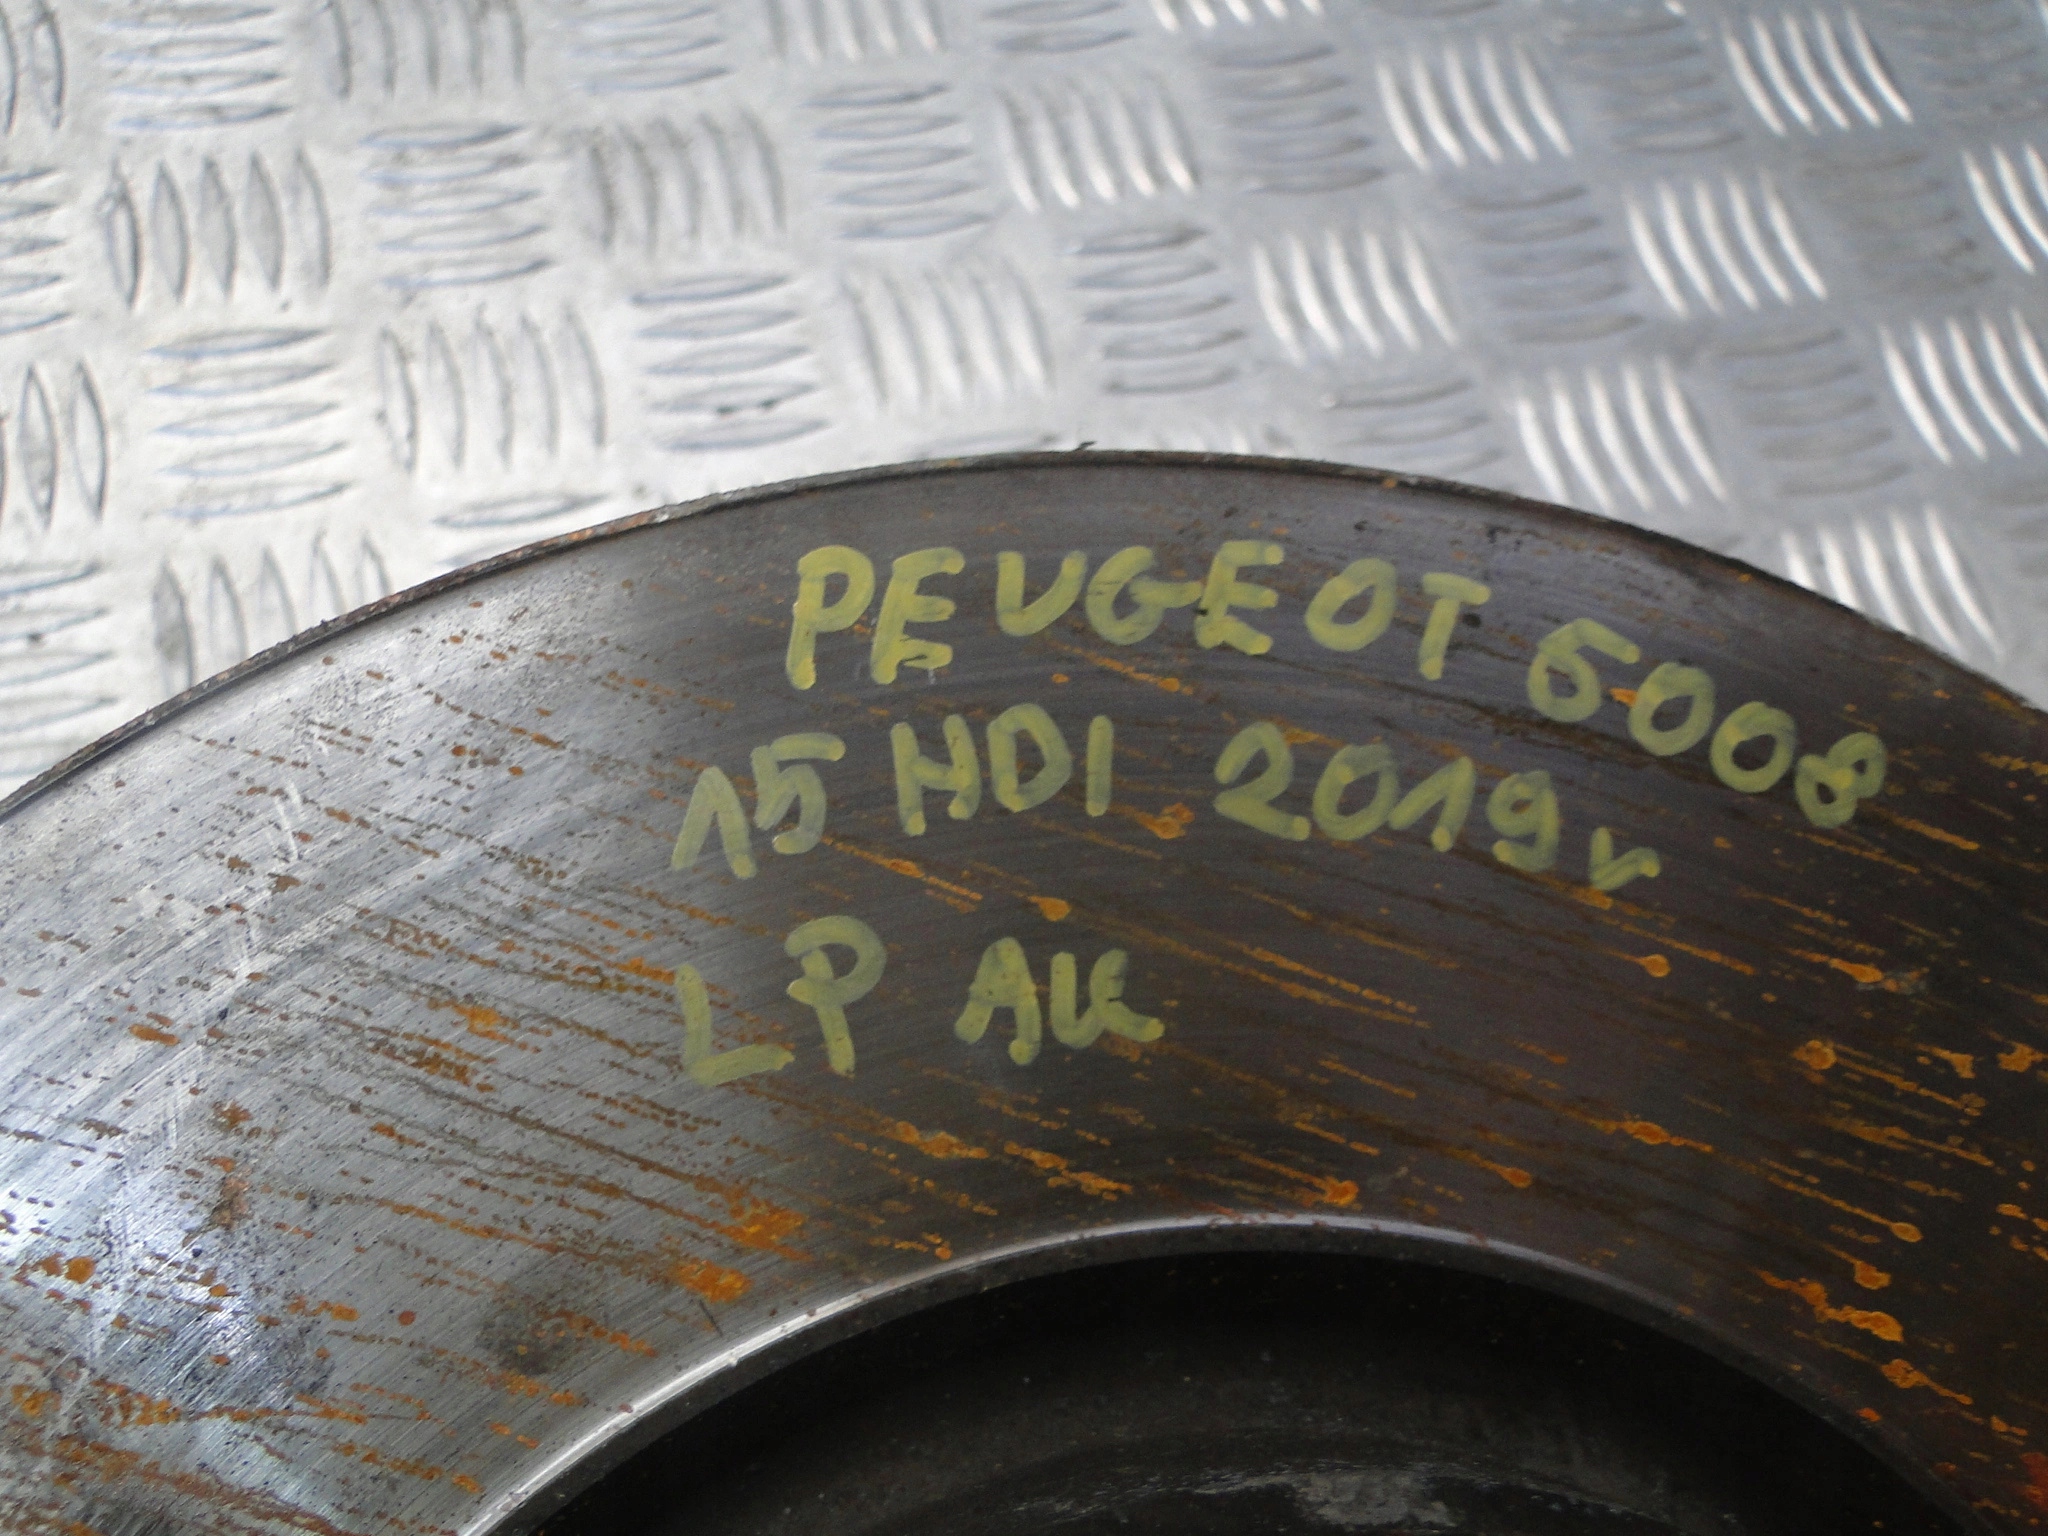 PEUGEOT 5008
15 HDI 2019r
LP AK